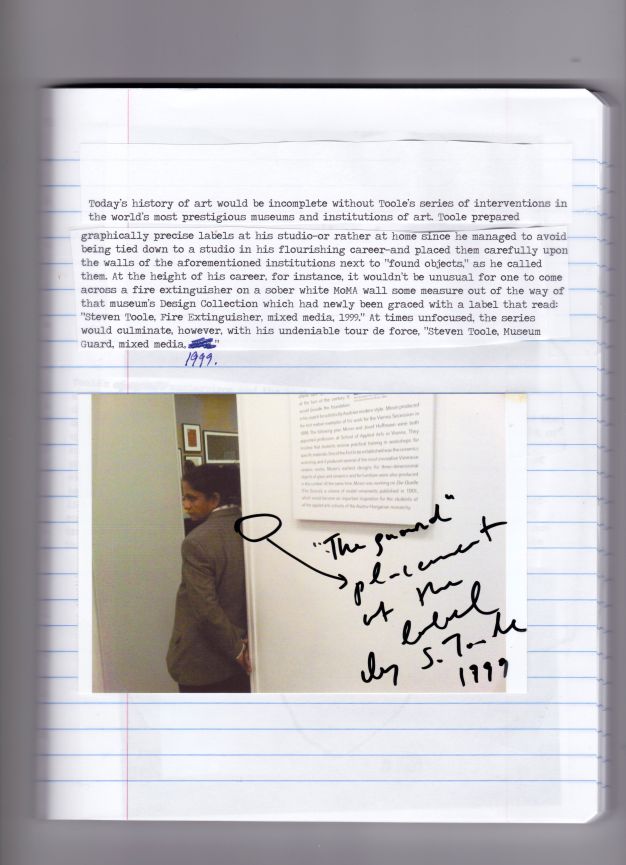 Today's history of art would be incomplete without Toole's series of interventions in
the world's most prestigious museums and institutions of art. Toole prepared
graphically precise labels at his studio-or rather at home since he managed to avoid
being tied down to a studio in his flourishing career-and placed them carefully upon
the walls of the aforementioned institutions next to "found objects," as he called
them. At the height of his career, for instance, it wouldn't be unusual for one to come
across a fire extinguisher on a sober white MoMA wall some measure out of the way of
that museum's Design Collection which had newly been graced with a label that read:
"Steven Toole, Fire Extinguisher, mixed media, 1999." At times unfocused, the series
would culminate, however, with his undeniable tour de force, "Steven Toole, Museum
Guard, mixed media, "
1999.
"The guard"
placement
of the
label
by S. Toole
1999